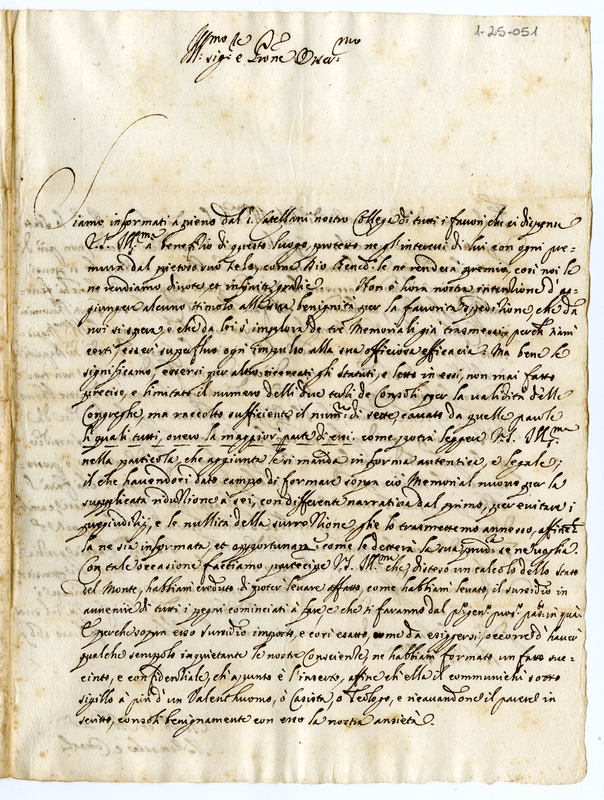 1-25-051
Ill.mo Sig.re e Prone Oss.mo
Siamo informati à pieno dal S. Catellani nostro Collega di tutti i favori, che ci dispensa
V.S. Ill.ma à beneficio di questo luogo, protetto ne gl'interessi di lui con ogni pre-
mura dal pietoso suo zelo, come Dio bened.o le ne renderà premio, così noi le
ne rendiamo divote, et infinite gratie. Non è hora nostra intentione d'ag-
giungere alcuno stimolo alla sua benignità per la favorita speditione, che da
noi si spera e che da lei s'implora de tre Memoriali già trasmessi, perche siam
certi esser superfluo ogni impulso alla sua officiosa efficacia: Ma bene le
significamo, essersi per altro ricercati gli statuti, e letto in essi, non mai fatto
preciso, e limitato il numero delli due terzi de Consoli per la validità delle
Congreghe, ma raccolto sufficiente il num.o di sette, cavato da quelle parole
li quali tutti, overo la maggior parte di essi. come potrà leggere V.S. Ill.ma
nella particola, che aggiunta le si manda in forma autentica, e legale;
il che havendoci dato campo di formare sopra ciò Memorial nuovo per la
supplicata riduttione à sei, con differente narrativa dal primo, per evitare i
pregiuditij, e le nullità della surrettione, glie lo trasmettemo annesso, affinch
la ne sia informata, et opportunam.e come le detterà la sua prud.a se ne vaglia.
Con tale occasione facciamo partecipe V.S. Ill.ma che, disteso un calcolo dello stato
del Monte, habbiam creduto di poter levare affatto, come habbiam levato, il sussidio in
avvenire di tutti i pegni cominciati à fare e che si faranno dal p.o gen.o pros.o pas.o in quà
E perche sopra esso sussidio imposto, e così esatto, come da esigersi, occorre d'haver
qualche scrupolo inquietante le nostre Conscienze, ne habbiam formato un fatto suc-
cinto, e confidentiale, ch'appunto è l'inserto, affine ch'ella il communichi sotto
sigillo à più d'un Valenthuomo, ò Casista, ò Teologo, e ricavandone il parere in
scritto, consoli benignamente con esso la nostra ansietà.